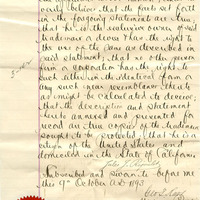 verily believe that the facts set forth
in the foregoing statement are true,
that he is the exclusive owner of said
trademark or device has the right to
the use of the same as described in
said statement, that no other person
firm or corporation has the right to
such either in the identical form or
any such near resemblance thereto
as might be calculated to deceive,
that the description and statement
hereto annexed and presented for
record are true copies of the trademark
sought to be protected, that he is a
citizen of the United States and
domiciled in the State of California
Subscribed and sworn to before me
this 9th October A.D. 1893